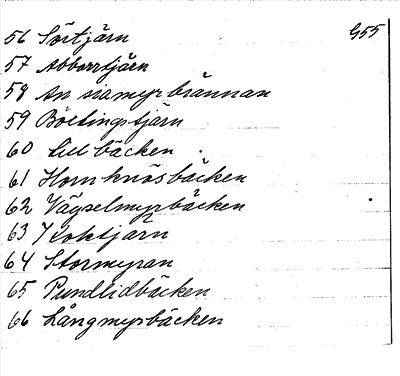 G55
56 Sörtjärn
57 Abborrtjärn
58 An namyrbrännan
59 Böltingstjärn
60 Lill bäcken
61 Hornknösbäcken
62 Vägselmyrbäcken
63 Koktjärn
64 Stormyran
65 Pundlidbäcken
66 Långmyrbäcken